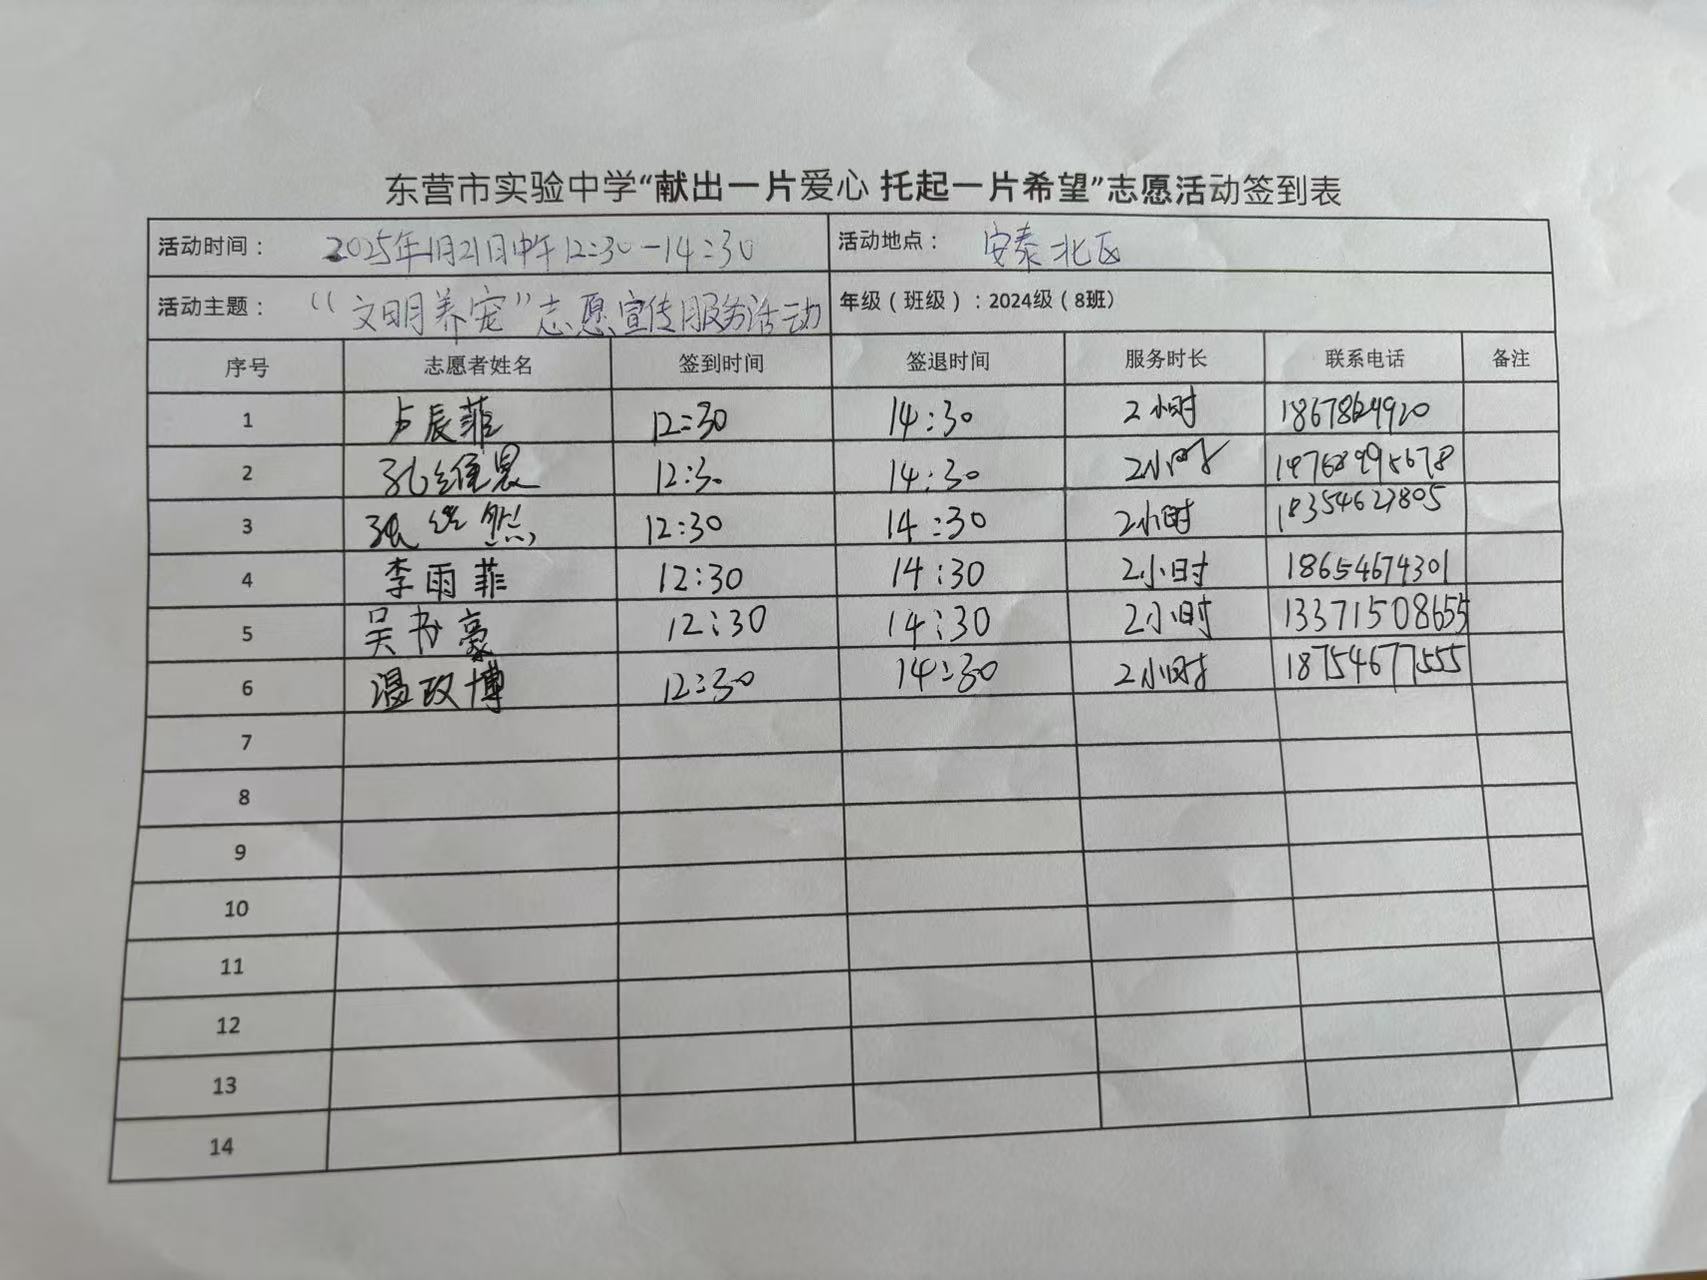 东营市实验中学“献出一片爱心 托起一片希望”志愿活动签到表
活动时间： 2025年1月21日中午12:30-14:30 活动地点： 安泰北区
活动主题： “文明养宠”志愿宣传服务活动 年级（班级）：2024级（8班）
序号 志愿者姓名 签到时间 签退时间 服务时长 联系电话 备注
1 卢辰菲 12:30 14:30 2小时
2 12:30 14:30 2小时
3 12:30 14:30 2小时 18354627805
4 李雨菲 12:30 14:30 2小时 18654674301
5 吴书豪 12:30 14:30 2小时 13371508655
6 温政博 12:30 14:30 2小时 18754677555
7
8
9
10
11
12
13
14